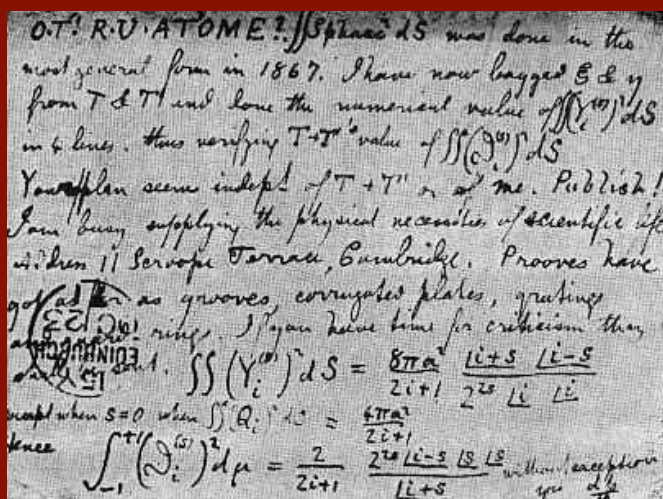 O.T! R.U. AT 'OME? ∬Spharc² dS was done in the
most general form in 1867. I have now bagged ξ & η
from T & T' and done the numerical value of ∬(Y_i^(s))² dS
in 4 lines. thus verifying T+T''s value of ∬(ϑ_i^(s))² dS
Your plan seems indept. of T+T' or of me. Publish!
I am busy supplying the physical necessities of scientific life
address 11 Scroope Terrace, Cambridge. Prooves have
got as far as grooves, corrugated plates, gratings
rings. If you have time for criticism they
∬(Y_i^(s))² dS = 8πa²/2i+1 · ⌊i+s ⌊i−s / 2^2s ⌊i ⌊i
EDINBURGH
except when s=0 when ∬(Q_i)² dS = 4πa²/2i+1
Hence
∫_−1^+1 (ϑ_i^(s))² dμ = 2/2i+1 · 2^2s ⌊i−s ⌊s ⌊s / ⌊i+s without exception